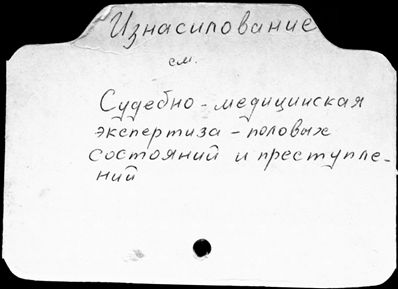 Изнасилование
см.
Судебно-медицинская
экспертиза - половых
состояний и преступле-
ний